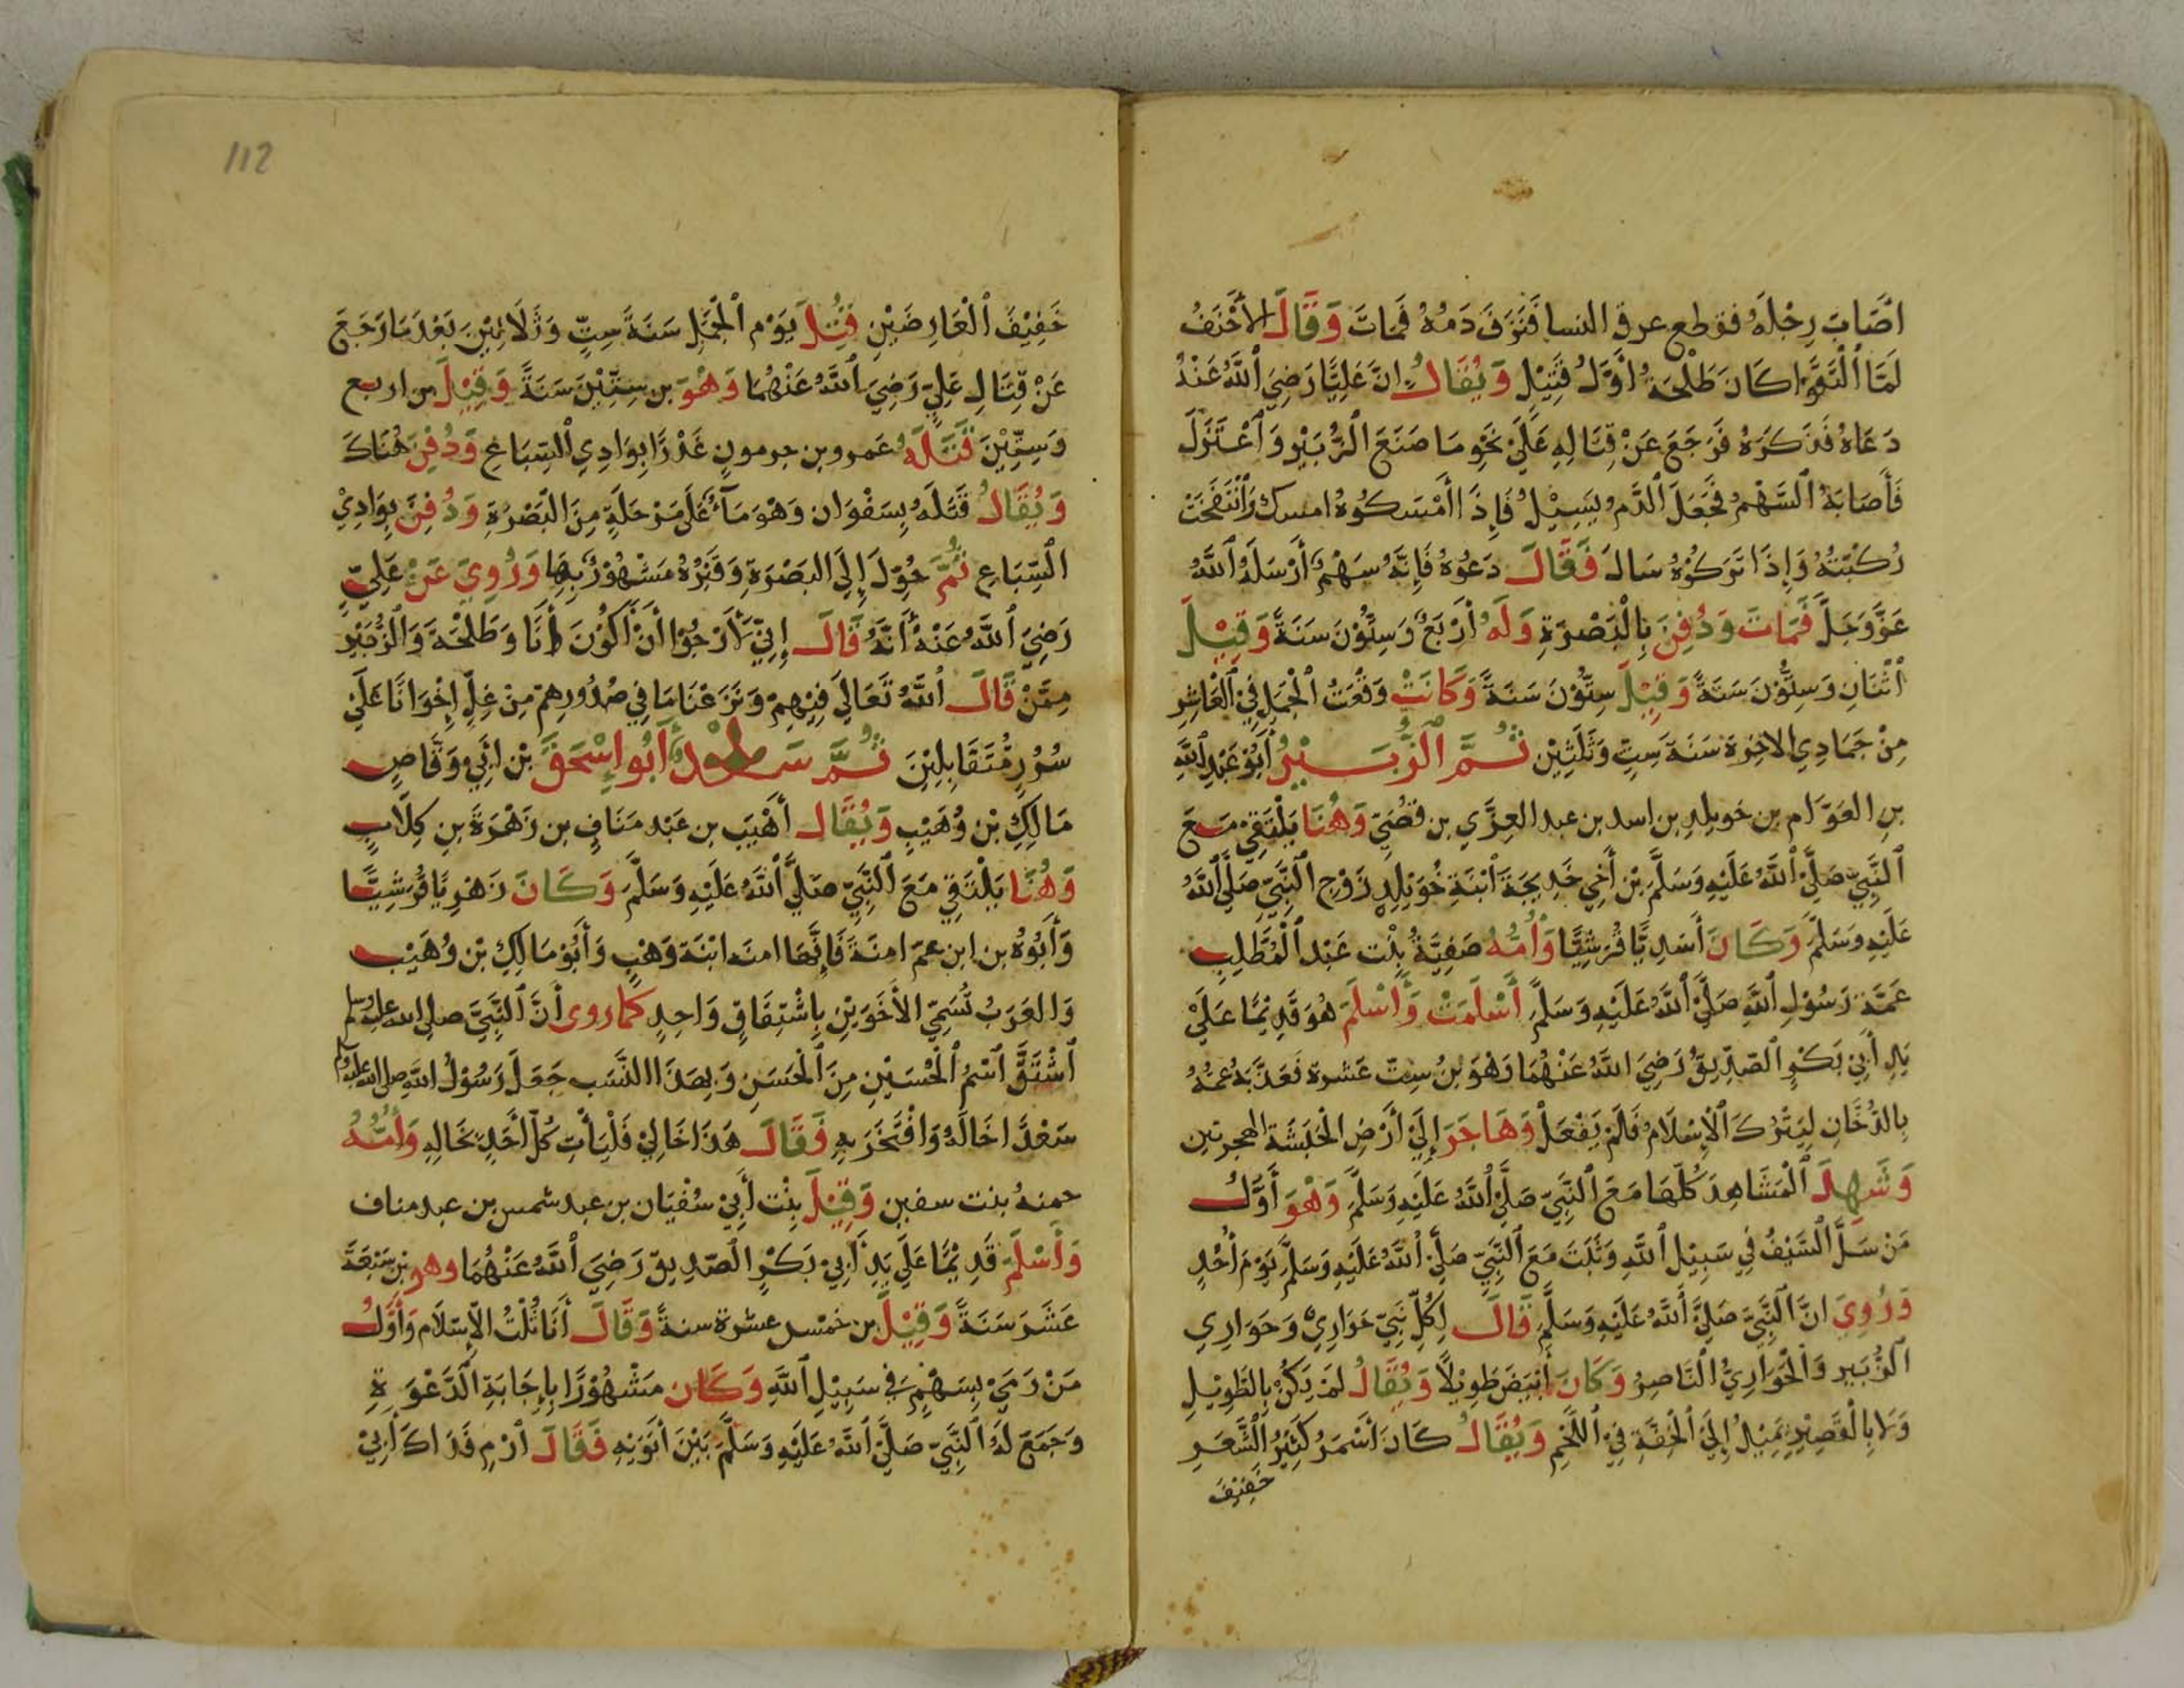 اصَابَ رِجْلَهُ فقطع عرق النسا فَنَزَفَ دَمُهُ فَمَاتَ وَقَالَ الأَحْنَفُ
لَمَّا الْتَقَوْا كَانَ طَلْحَةُ اوَّلُ قَتِيْلٍ وَيُقَالُ انَّ عَلِيًّا رَضِيَ اللَّهُ عَنْهُ
دَعَاهُ فَذَكَرَهُ فَرَجَعَ عَنْ قِتَالِهِ عَلَى نَحْوِ مَا صَنَعَ الْزُّبَيْرِ وَاعْتَزَلَ
فَأَصَابَهُ السَّهْمُ فَجَعَلَ الدَّمُ يَسِيْلُ فَإِذَا أَمْسَكُوهُ امسك وَانْتَفَخَتْ
رُكْبَتُهُ وَإِذَا تَرَكُوْهُ سَالَ فَقَالَ دَعُوهُ فَإِنَّهُ سَهْمٌ أَرْسَلَهُ اللَّهُ
عَزَّ وَجَلَّ فَمَاتَ وَدُفِنَ بِالْبَصْرَةِ وَلَهُ أَرْبَعٌ وَسِتُّوْنَ سَنَةً وَقِيْلَ
اثْنَانِ وَسِتُّوْنَ سَنَةً وَقِيْلَ سِتُّوْنَ سَنَةً وَكَانَتْ وَقْعَتُ الْجَمَلِ فِيْ الْعَاشِرِ
مِنْ جَمَادِي الاخِرَة سَنَةَ سِتٍّ وَثَلَثِيْن ثُمَّ الزُّبَيْرُ أَبُوْ عَبْدِ اللَّهِ
بنِ العَوَّام بن خويلدِ بن اسد بن عبد العِزَّي بن قصَيّ وَهُنَا يَلْتَقِيْ مَعَ
النَّبِيّ صَلَّى اللَّهُ عَلَيْهِ وَسَلَّمَ بْن أَخِي خَدِيجَةَ ابْنَةِ خُوَيْلِدٍ زَوْجِ النَّبِيّ صَلَّى اللَّهُ
عَلَيْهِ وَسَلَّمَ وَكَانَ أَسَدِيًّا قُرَشِيًّا وَأُمُّهُ صَفِيَّةُ بِنْت عَبْد الْمُطَّلِبِ
عَمَّةَ رَسُوْلِ اللَّهِ صَلَّى اللَّهُ عَلَيْهِ وَسَلَّمَ أَسْلَمَتْ وَأَسْلَمَ هُوَ قَدِيْمًا عَلَى
يَدِ أَبِي بَكْرٍ الصّدِّيقُ رَضِيَ اللَّهُ عَنْهُمَا وَهْوَ بْنُ سِتَّ عَشرة فَعَذَّبَهُ عَمُّهُ
بِالدُّخَانِ لِيَتْرُكَ الْإِسْلَامَ فَلَمْ يَفْعَلْ وَهَاجَرَ إِلَى أَرْضِ الْحَبَشَةَ الهجرتين
وَشَهِدَ الْمَشَاهِدَ كُلَّهَا مَعَ النَّبِيّ صَلَّى اللَّهُ عَلَيْهِ وَسَلَّمَ وَهْوَ أَوَّلُ
مَنْ سَلَّ السَّيْفُ فِي سَبِيْلِ اللَّهِ وَثَبَتَ مَعَ النَّبِيّ صَلَّى اللَّهُ عَلَيْهِ وَسَلَّمَ يَوْمَ أُحُدٍ
وَرُوِيَ انَّ النَّبِيَّ صَلَّى اللَّهُ عَلَيْهِ وَسَلَّمَ قَالَ لِكُلِّ نَبِيّ حَوَارِيٌّ وَحَوَارِيِ
الزُّبَير وَالْحَوَارِيُّ النَّاصِرُ وَكَانَ أَبْيَضَ طَوِيْلًا وَيُقَالُ لَمْ يَكُنْ بِالطَّوِيْلِ
وَلا بِالْقَصِيْرِ يَمِيْلُ إِلَى الْخِفَّةِ فِيْ اللَّحْمِ وَيُقَالُ كَانَ أَسْمَرُ كَثِيْرُ الشَّعَرِ
خَفِيْفَ
112
خَفِيْفَ الْعَارِضَيْنِ قُتِلَ يَوْم الْجَمَلِ سَنَةَ سِتٍّ وَثَلَاثِيْنَ بَعْدَ مَا رَجَعَ
عَنْ قِتَالِ عَلِيّ رَضِيَ اللَّهُ عَنْهُمَا وَهْوَ بن سِتِّيْنَ سَنَةً وَقِيْلَ بن اربع
وَسِتِّيْنَ قَتَلَهُ عَمرو بن جرمونٍ غَدْرًا بِوَادِي السِّبَاعِ وَدُفِنَ هُنَاكَ
وَيُقَالُ قَتَلَهُ بِسَفْوَان وَهْوَ مَآءٌ عَلَى مَرْحَلَةٍ مِنَ البَصْرَةِ وَدُفِنَ بِوَادِيْ
السِّبَاعِ ثُمَّ حُوِّلَ إِلَى البَصْرَةِ وَقَبْرُهُ مَشْهُوْرٌ بِهَا وَرُوِيَ عَنْ عَلِيٍّ
رَضِيَ اللَّهُ عَنْهُ أَنَّهُ قَالَ إِنِّيْ لَأَرْجُوْا أَنْ أَكُوْنَ أَنَا وَطَلْحَةَ وَالزُّبَيْرِ
مِمَّنْ قَالَ اللَّهُ تَعَالَى فِيْهِمْ وَنَزَعْنَا مَا فِي صُدُورِهِمْ مِنْ غِلٍّ إِخْوَانًا عَلَى
سُرُرٍ مُتَقَابِلِيْنَ ثُمَّ سَعْدٌ أَبُو إِسْحَقَ بْن أَبِيْ وَقَّاصٍ
مَالِكِ بْن وُهَيْبٍ وَيُقَالُ أُهَيْبَ بن عَبْد مَنَافٍ بن زَهْرَةَ بنِ كِلَابٍ
وَهُنَا يَلْتَقِي مَعَ النَّبِيّ صَلَّى اللَّهُ عَلَيْهِ وَسَلَّمَ وَكَانَ زَهْرِيًا قُرَشِيًّا
وَأَبُوْهُ بن ابن عمّ امنَةَ فَإِنَّهَا امنة ابْنَة وَهْبٍ وَأَبُوْ مَالِكِ بْن وُهَيْب
وَالعَرَبُ تُسَمِّيْ الأَخَوَيْنِ بِاشْتِقَاقٍ وَاحِدٍ كما روى أنَّ النَّبِيَّ صلى الله عليه وسلم
اشْتَقَّ اسْمُ الْحُسَيْنِ مِنَ الْحَسَنِ وَبِهَذَا النَّسَب جَعَلَ رَسُوْلُ اللَّهِ صلى الله عليه وسلم
سَعْدًا خَالَهُ وَافْتَخَرَ بِهِ فَقَالَ هَذَا خَالِيْ فَلْيَأْتِ كُلّ أَحَدٍ بِخَالِهِ وَأُمُّهُ
حمنهُ بنت سفين وَقِيْلَ بِنْت أَبِيْ سُفْيَان بن عبد شمس بن عبد مناف
وَأَسْلَمَ قَدِيْمًا عَلَى يَدِ أَبِيْ بَكْرٍ الصّدّيق رَضِيَ اللَّهُ عَنْهُمَا وهو بن سَبْعَةَ
عَشَرَ سَنَةً وَقِيْلَ بن خمْس عشرة سنةً وَقَالَ أَنَا ثُلُثُ الإِسْلَام وَأَوَّلُ
مَنْ رَمَى بِسَهْمٍ فِي سَبِيْلِ اللَّهِ وَكَان مَشْهُوْرًا بِإِجَابَةِ الدَّعْوَةِ
وَجَمَعَ لَهُ النَّبِيّ صَلَّى اللَّهُ عَلَيْهِ وَسَلَّمَ بَيْنَ أَبَوَيْهِ فَقَالَ ارْمِ فَدَاكَ أَبِيْ